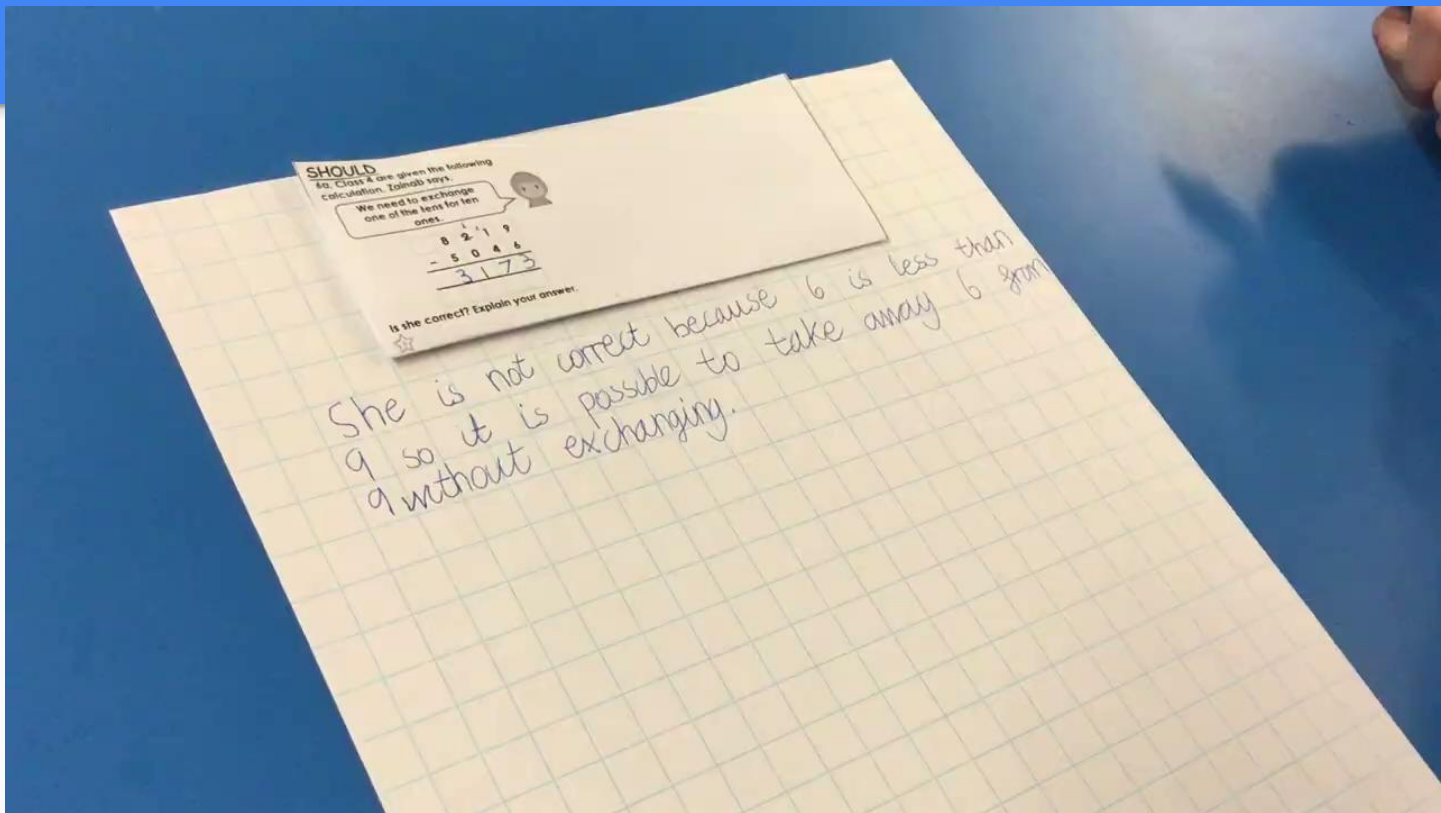 SHOULD
6a. Class 4 are given the following
calculation. Zainab says,
We need to exchange
one of the tens for ten
ones.
1
8 2 ¹1 9
- 5 0 4 6
3 1 7 3
Is she correct? Explain your answer.
She is not correct because 6 is less than
9 so it is possible to take away 6 from
9 without exchanging.